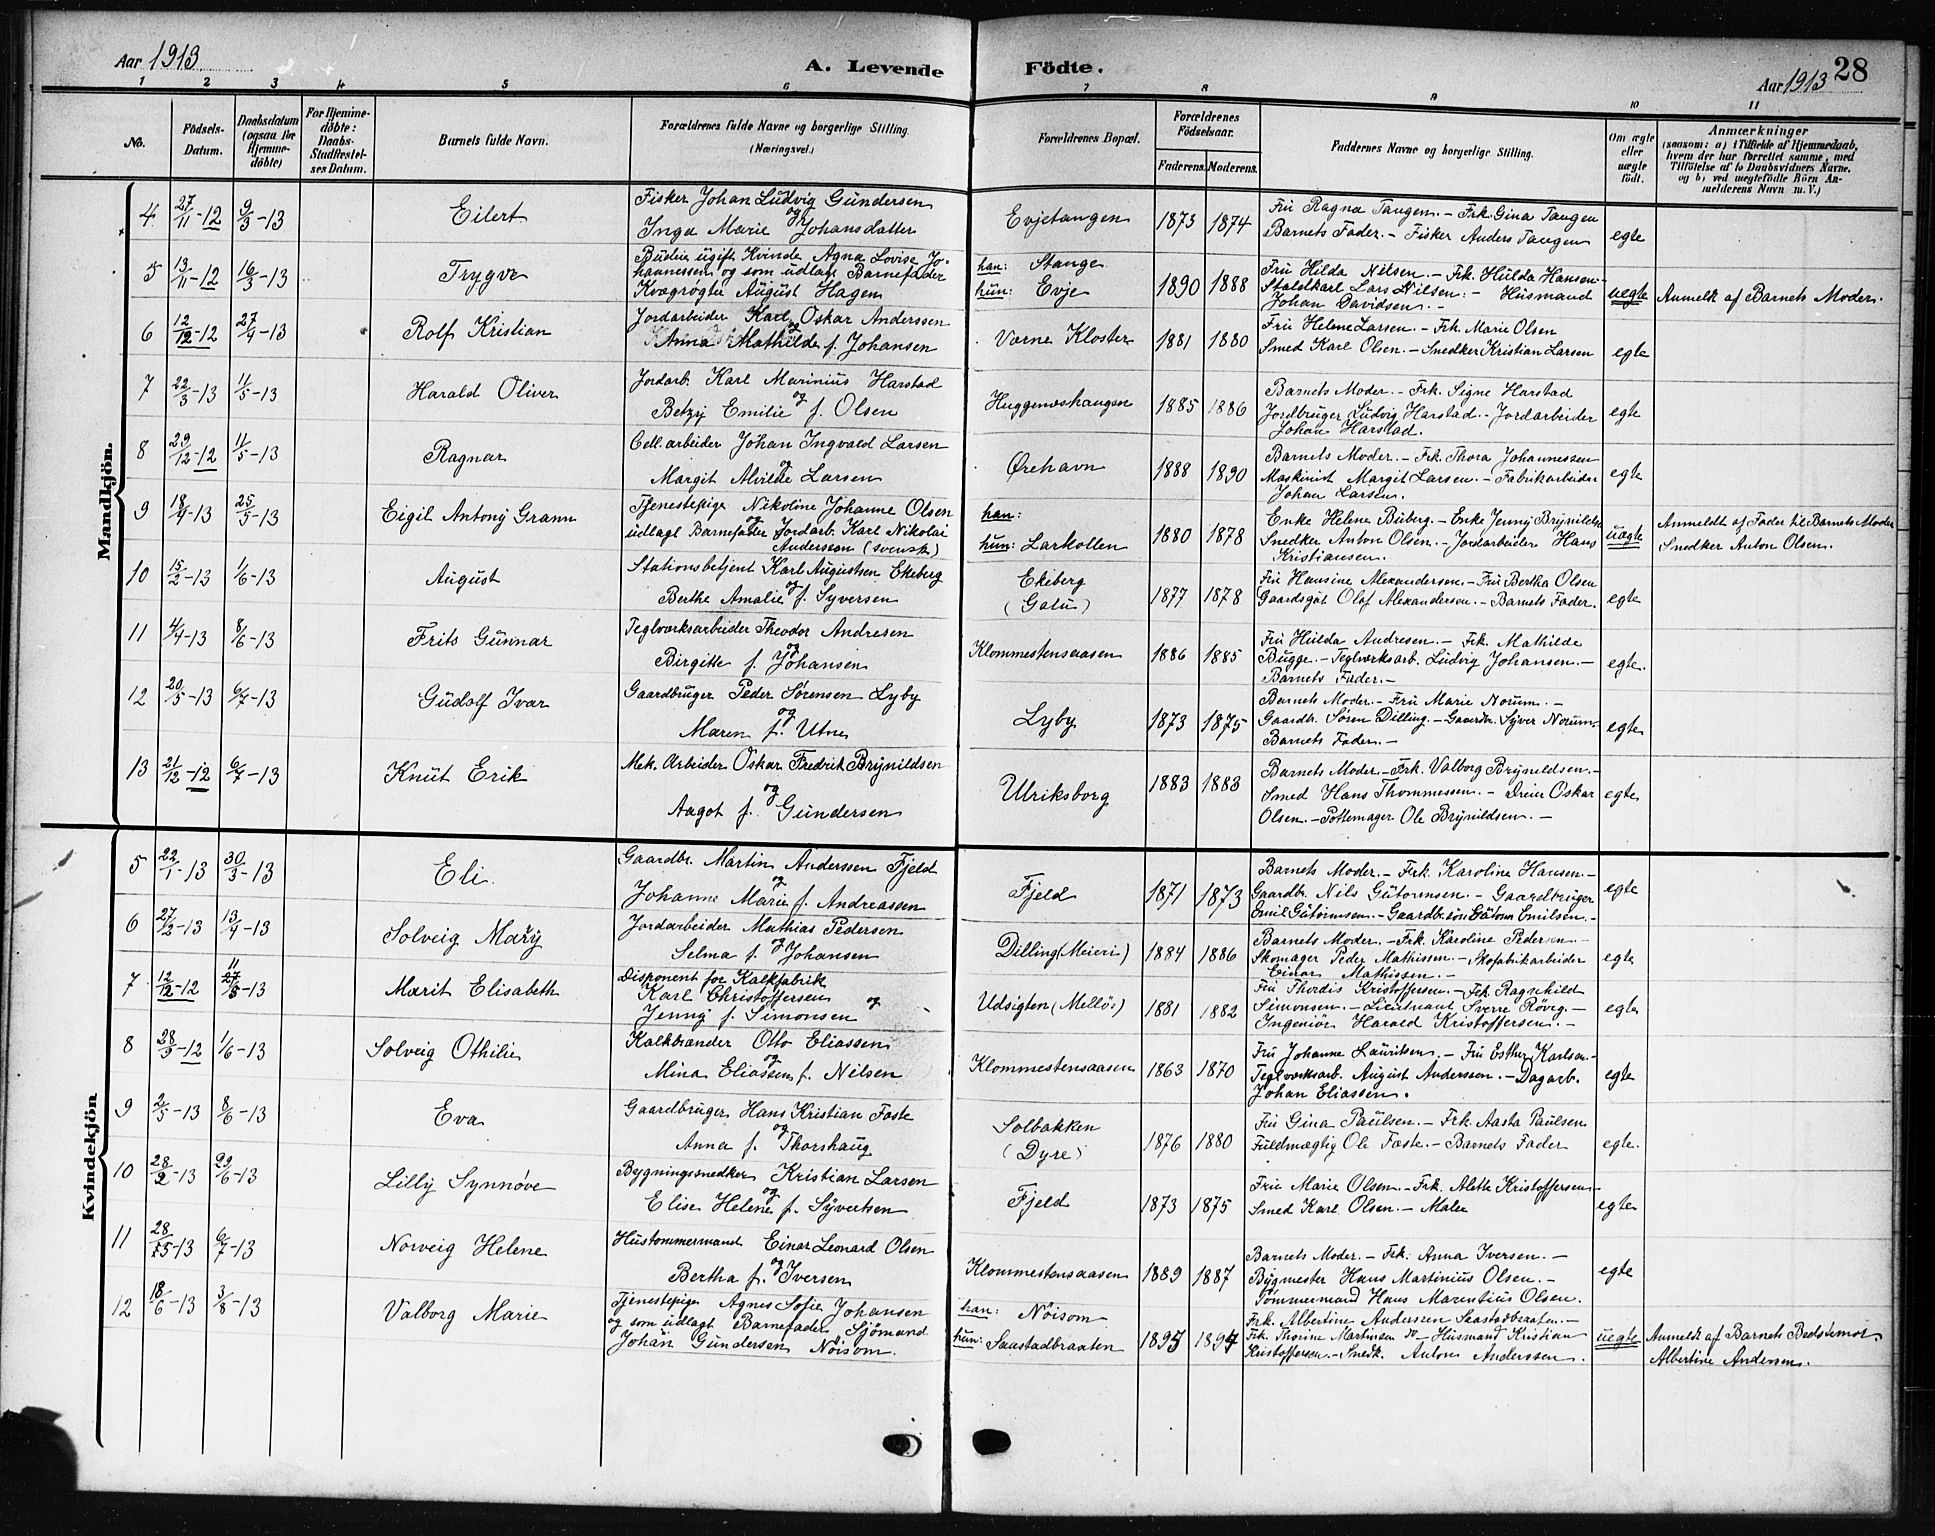 Aar 1913
A. Levende Födte.
Aar 1913
28
1 2 3 4 5 6 7 8 9 10 11
No.
Födsels-Datum.
Daabsdatum (ogsaa for Hjemmedöbte)
For Hjemmedöbte: Daabs-Stadfæstelses Datum.
Barnets fulde Navn.
Forældrenes fulde Navne og borgerlige Stilling.
(Næringsvei.)
Forældrenes Bopæl.
Forældrenes Födselsaar.
Faderens. Moderens.
Faddernes Navne og borgerlige Stilling.
Om ægte eller uægte födt.
Anmærkninger
(saasom: a) i Tilfælde af Hjemmedaab,
hvem der har forrettet samme, med
Tilföielse af to Daabsvidners Navne,
og b) ved uægtefödte Börn An-
melderens Navn m. V.)
Mandkjön.
4 27/11-12 9/3-13 Eilert
Fisker Johan Ludvig Gundersen
og
Inga Marie Johansdatter
Evjetangen 1873 1874
Fru Ragna Tangen. - Frk. Gina Tangen
Barnets Fader. - Fisker Anders Tangen
egte
5 13/11-12 16/3-13 Trygve
Budeie ugift Kvinde Agna Lovise Jo-
hannessen og som udlagt Barnefader
Kvægrøgter August Hagen
han: Stange
hun: Evje
1890 1888
Fru Hilda Nilsen. - Frk. Hulda Hansen.
Staldkarl Lars Nilsen. - Husmand
Johan Davidsen. -
uegte
Anmeldt af Barnets Moder.
6 12/12-12 27/4-13 Rolf Kristian
Jordarbeider Karl Oskar Anderssen
og
Anna Mathilde f. Johansen
Værne Kloster 1881 1880
Fru Helene Larsen. - Frk. Marie Olsen
Smed Karl Olsen. - Snedker Kristian Larsen
egte
7 22/3-13 11/5-13 Harald Oliver
Jordarb. Karl Marinius Harstad
og
Betzy Emilie f. Olsen
Huggenæshaugen 1885 1886
Barnets Moder. - Frk. Signe Harstad
Jordbruger Ludvig Harstad. - Jordarbeider
Johan Harstad.
egte
8 29/12-12 11/5-13 Ragnar
Cell. arbeider Johan Ingvald Larsen
og
Margit Alvilde Larsen
Ørehavn 1888 1890
Barnets Moder. - Frk. Thora Johannessen
Maskinist Margit Larsen. - Fabrikarbeider
Johan Larsen.
egte
9 18/4-13 25/5-13 Eigil Antony Grann
Tjenestepige Nikoline Johanne Olsen
og
udlagt Barnefader Jordarb. Karl Nikolai
Andersson (svensk)
han:
hun: Larkollen
1880 1878
Enke Helene Buberg. - Enke Jenny Brynildse
Snedker Anton Olsen. - Jordarbeider Hans
Kristiansen.
uægte
Anmeldt af Fader til Barnets Moder
Snedker Anton Olsen.
10 15/2-13 1/6-13 August
Stationsbetjent Karl Augustsen Ekeberg
og
Berthe Amalie f. Syversen
Ekeberg
(Galu)
1877 1878
Fru Hansine Alexandersen. - Fru Bertha Olsen
Gaardsgut Olaf Alexandersen. - Barnets Fader.
egte
11 4/4-13 8/6-13 Frits Gunnar
Teglværksarbeider Theodor Andresen
og
Birgitte f. Johansen
Klommestensaasen 1886 1885
Fru Hulda Andresen. - Frk. Mathilde
Bugge. - Teglværksarb. Ludvig Johansen. -
Barnets Fader. -
egte.
12 20/5-13 6/7-13 Gudolf Ivar
Gaardbruger Peder Sørensen Lyby
og
Maren f. Utne
Lyby 1873 1875
Barnets Moder. - Fru Marie Norum. -
Gaardbr. Søren Dilling. - Gaardbr. Syver Norum.
Barnets Fader. -
egte
13 21/12-12 6/7-13 Knut Erik
Mek. Arbeider Oskar Fredrik Brynildsen
og
Aagot f. Gundersen
Ulriksborg 1883 1883
Barnets Moder. - Frk. Valborg Brynildsen. -
Smed Hans Thommessen. - Dreier Oskar
Olsen. - Pottemager Ole Brynildsen. -
egte
Kvindekjön
5 22/1-13 30/3-13 Eli.
Gaardbr. Martin Anderssen Fjeld
og
Johanne Marie f. Andreassen
Fjeld 1871 1873
Barnets Moder. - Frk. Karoline Hansen. -
Gaardbr. Nils Gutormsen. - Gaardbruger
Emil Gutormsen. - Gaardbr.søn Gutorm Emilsen. -
egte
6 27/2-13 13/4-13 Solveig Mary
Jordarbeider Mathias Pedersen
og
Selma f. Johansen
Dilling (Meieri) 1884 1886
Barnets Moder. - Frk. Karoline Pedersen. -
Skomager Peder Mathissen. - Skofabrikarbeider
Einar Mathissen. -
egte
7 12/12-12 11/5-13 Marit Elisabeth
Disponent for Kalkfabrik
Karl Christoffersen og
Jenny f. Simonsen
Udsigten (Mellös) 1881 1882
Fru Thordis Kristoffersen. - Frk. Ragnhild
Simonsen. - Lieutnant Sverre Röveg. -
Ingeniör Harald Kristoffersen. -
egte
8 28/9-12 1/6-13 Solveig Othilie
Kalkbrænder Otto Eliassen
og
Mina Eliassen f. Nilsen
Klommestensaasen 1863 1870
Fru Johanne Lauritsen. - Fru Esther Karlsen. -
Teglværksarb. August Anderssen. - Dagarb.
Johan Eliassen.
egte
9 2/5-13 8/6-13 Eva
Gaardbruger Hans Kristian Faste
og
Anna f. Thorshaug
Solbakken
(Dyre)
1876 1880
Fru Gina Paulsen. - Frk. Aasta Paulsen
Fuldmægtig Ole Faste. - Barnets Fader
egte.
10 28/2-13 29/6-13 Lilly Synnøve
Bygningssnedker Kristian Larsen
og
Elise Helene f. Syvertsen
Fjeld 1873 1875
Fru Marie Olsen. - Frk. Alette Kristoffersen
Smed Karl Olsen. - Maler
egte
11 28/5-13 6/7-13 Norveig Helene
Hustømmermand Einar Leonard Olsen
og
Bertha f. Iversen
Klommestensaasen 1889 1887
Barnets Moder. - Frk. Anna Iversen. -
Bygmester Hans Martinius Olsen. -
Tømmermand Hans Marentius Olsen.
egte
12 18/6-13 3/8-13 Valborg Marie
Tjenestepige Agnes Sofie Johansen
og som udlagt Barnefader Sjömand
Johan Gundersen Nöisom.
han: Nöisom
hun: Saastadbraaten
1895 1894
Frk. Albertine Anderssen Saastadbraaten. -
Frk. Thorine Martinsen - Husmand Kristian
Kristoffersen. - Snedk. Anton Anderssen.
uegte
Anmeldt af Barnets Bedstemor
Albertine Andersen.